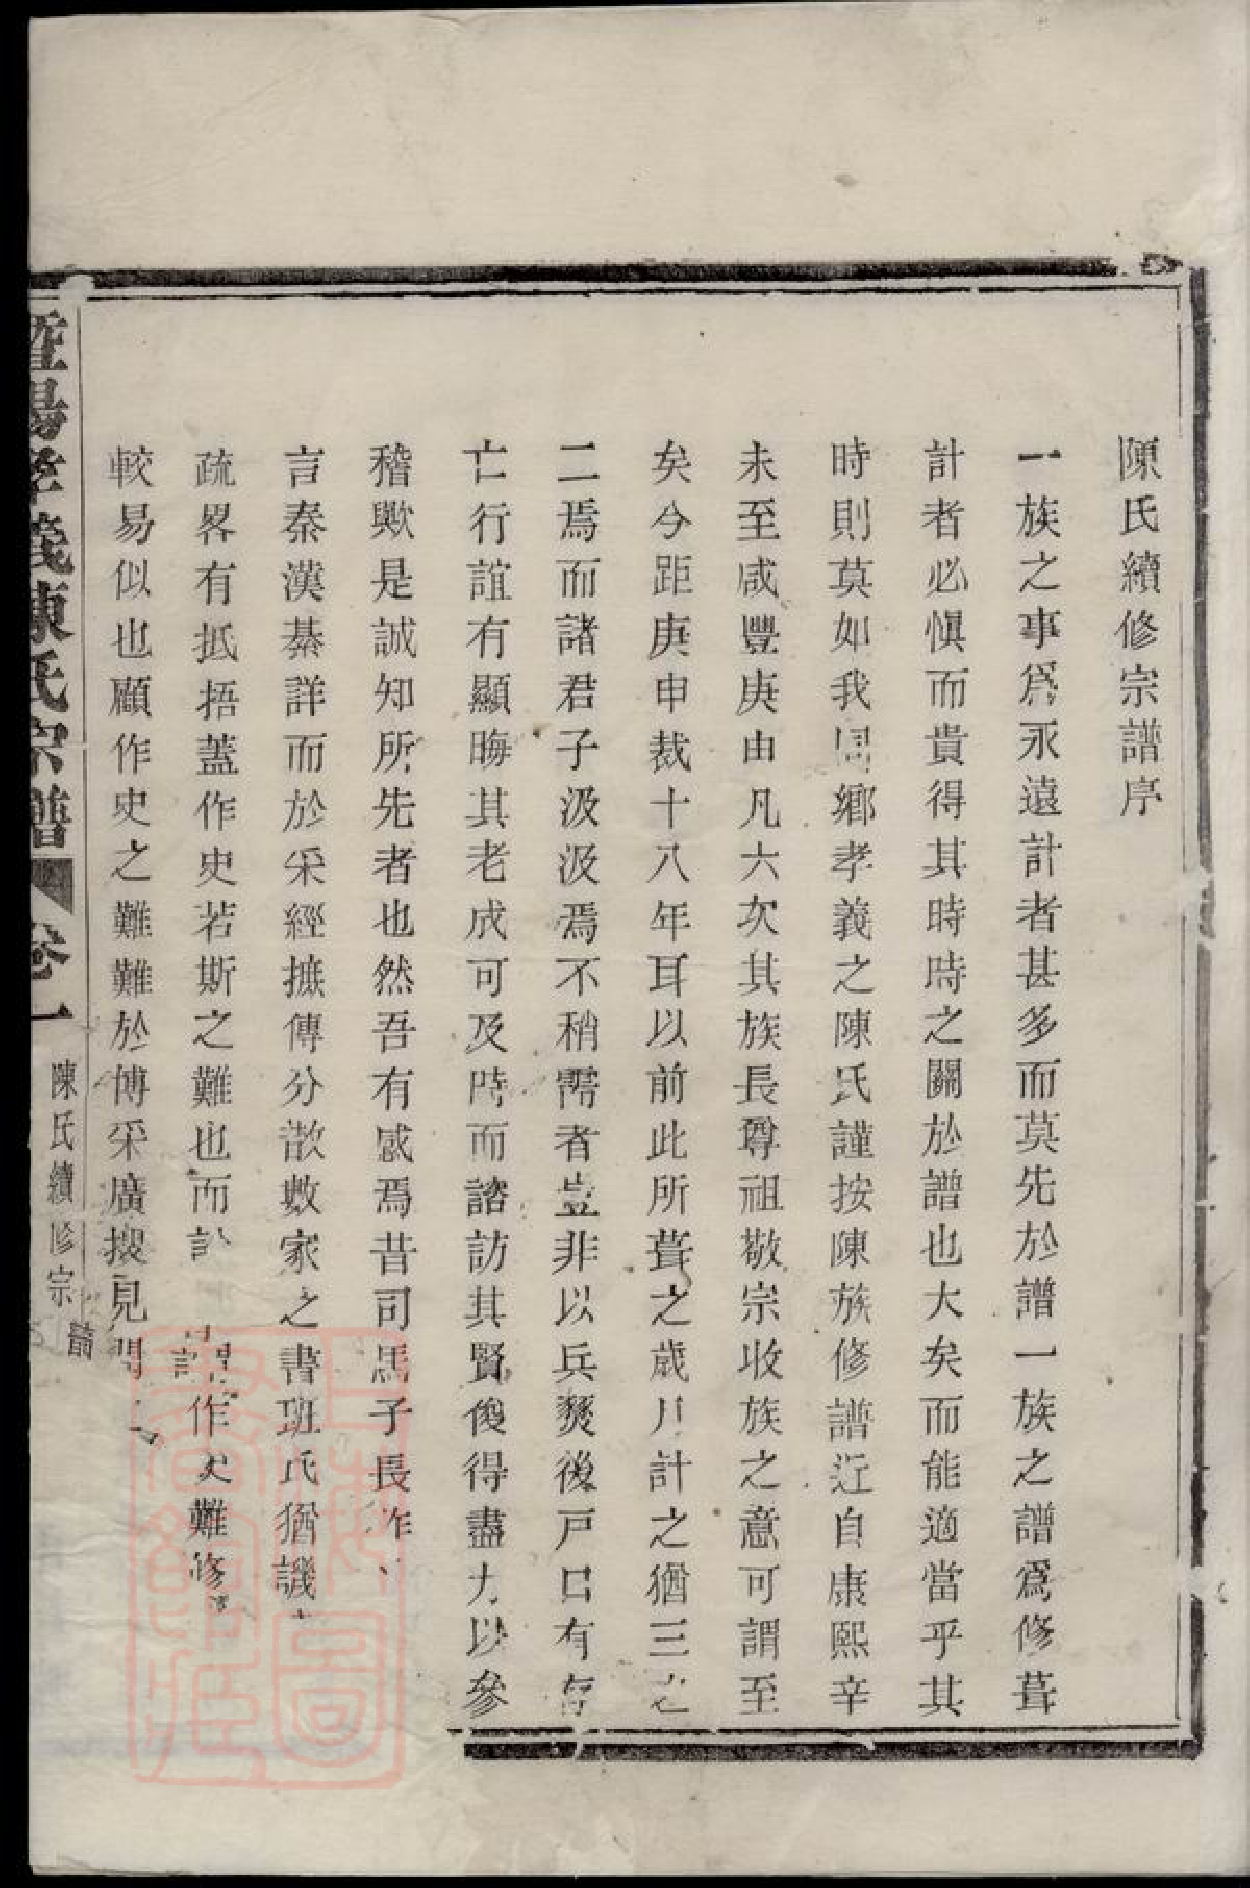 陳氏續修宗譜序
一族之事爲永遠計者甚多而莫先於譜一族之譜爲修葺
計者必愼而貴得其時時之關於譜也大矣而能適當乎其
時則莫如我同鄉孝義之陳氏謹按陳族修譜迂自康熙辛
未至咸豐庚由凡六次其族長尊祖敬宗收族之意可謂至
矣今距庚申裁十八年耳以前此所葺之歲月計之猶三之
二焉而諸君子汲汲焉不稍霱者豈非以兵燹後戸口有存
亡行誼有顯晦其老成可及時而諮訪其賢俊得盡力以參
稽歟是誠知所先者也然吾有感焉昔司馬子長作
言秦漢綦詳而於采經摭傳分散數家之書班氏猶譏
疏畧有抵捂蓋作史若斯之難也而 作史難修
較易似也顧作史之難難於博采廣搜見聞
暨陽孝義陳氏宗譜 卷一 陳氏續修宗譜
上海圖書館藏